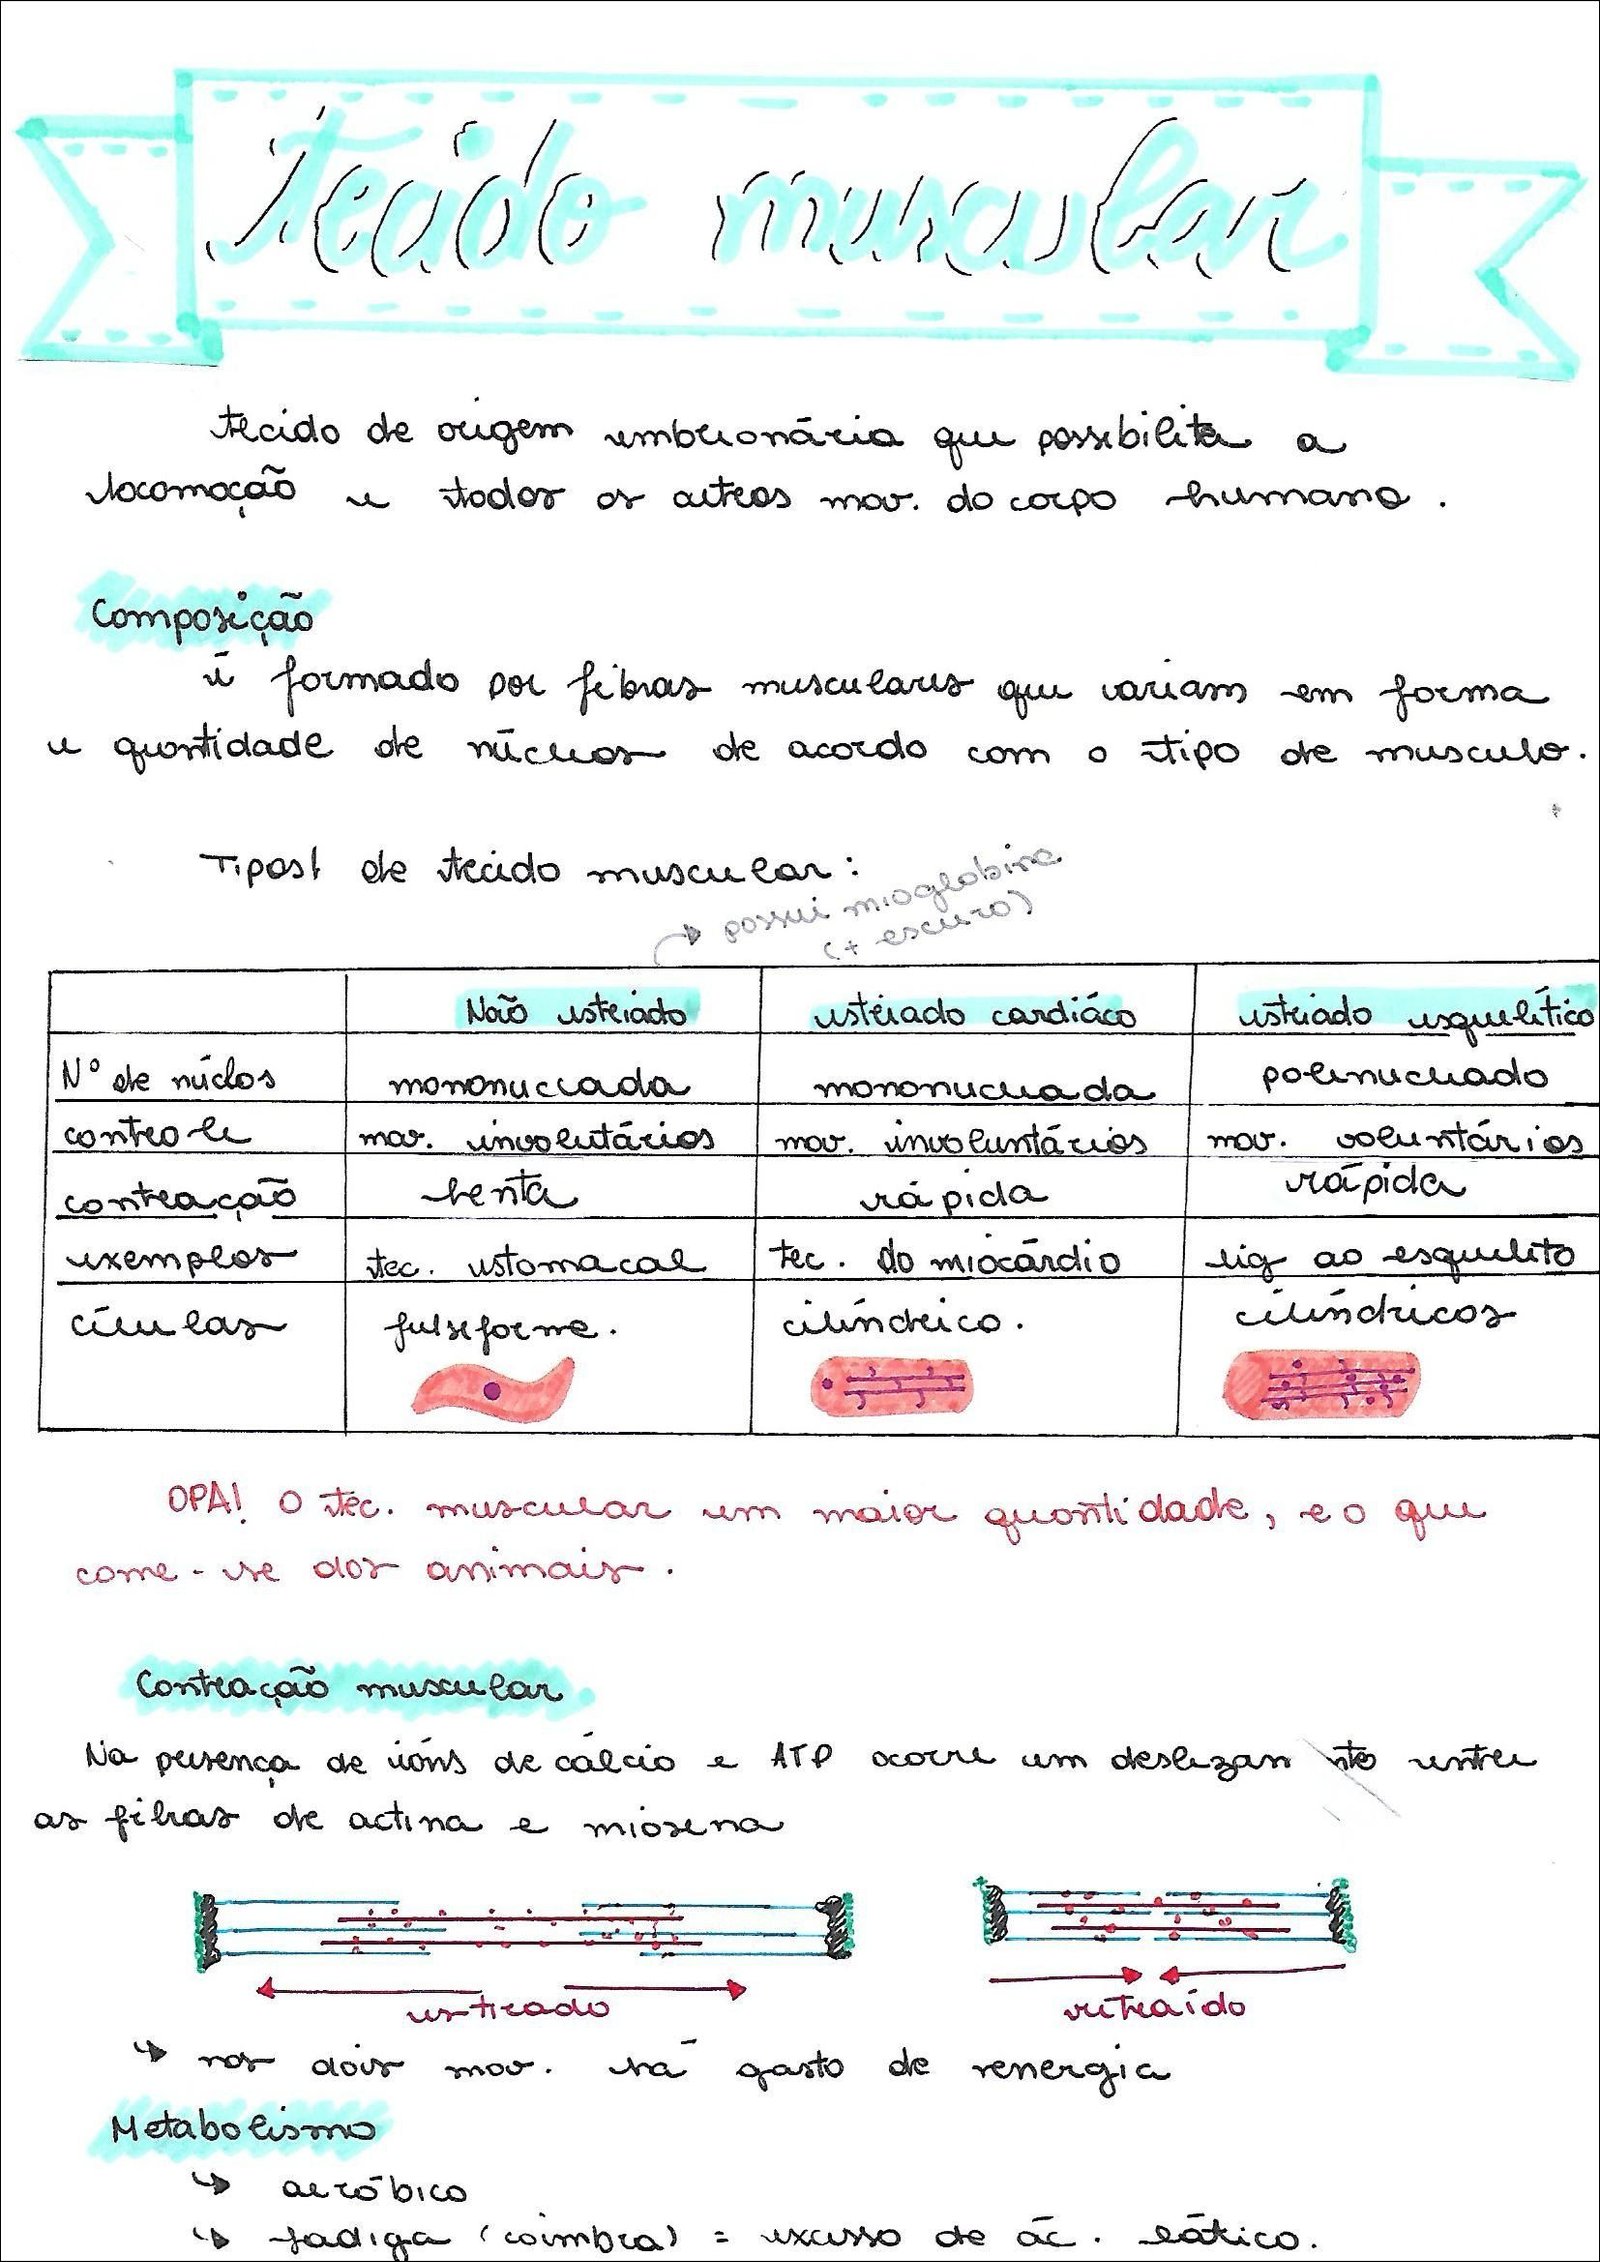 tecido muscular
tecido de origem embrionária que possibilita a
locomoção e todos os outros mov. do corpo humano.
Composição
é formado por fibras musculares que variam em forma
e quantidade de núcleos de acordo com o tipo de musculo.
Tipos de tecido muscular:
possui mioglobina
(+ escuro)
Não estriado estriado cardiáco estriado esquelético
Nº de núclos mononucleada mononucleada polinucleado
controle mov. involutários mov. involuntários mov. voluntários
contração lenta rápida rápida
exemplos tec. estomacal tec. do miocárdio lig ao esqueleto
células fulsiforme. cilíndrico. cilíndricos
OPA! O tec. muscular em maior quantidade, e o que
come-se dos animais.
Contração muscular
Na presença de íons de cálcio e ATP ocorre um entre
as fibras de actina e miosena
estirado retraído
nos dois mov. há gasto de energia
Metabolismo
aeróbico
fadiga (coimbra) = excesso de ác. lático.